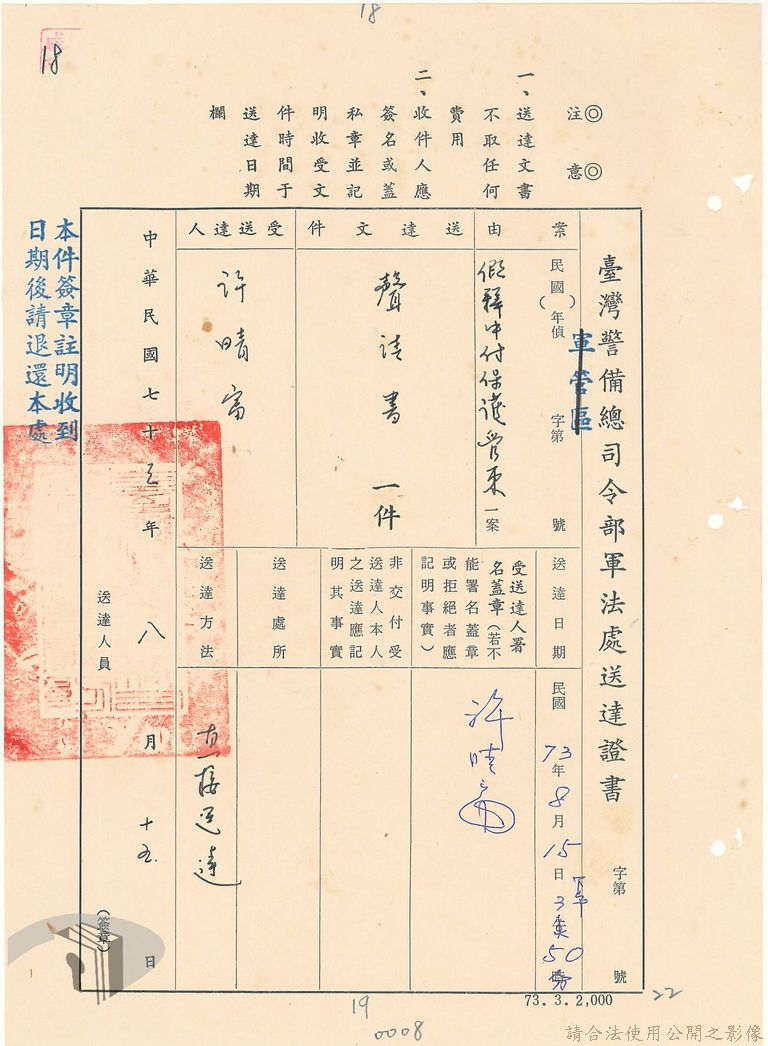 18
18
◎注意◎
一、送達文書
不取任何
費用
二、收件人應
簽名或蓋
私章並記
明收受文
件時間于
送達日期
欄
臺灣警備總司令部軍法處送達證書
軍管區
字第 號
案由
民國( )年偵 字第 號
假釋中付保護管束一案
送達文件
聲請書 一件
受送達人
許晴富
送達日期
民國73年8月15日
50
受送達人署
名蓋章(若不
能署名蓋章
或拒絕者應
記明事實)
許晴富
非交付受
送達人本人
之送達應記
明其事實
送達處所
送達方法
直接送達
中華民國七十三年八月十五日
送達人員 (簽章)
本件簽章註明收到
日期後請退還本處
73. 3. 2,000
22
19
0008
請合法使用公開之影像